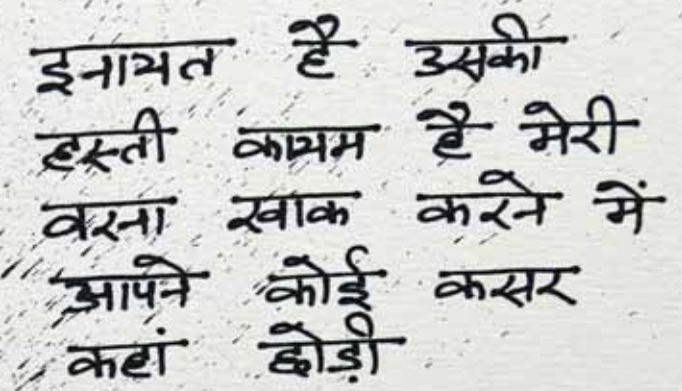 इनायत है उसकी
हस्ती कायम है मेरी
वरना खाक करने में
आपने कोई कसर
कहां छोड़ी